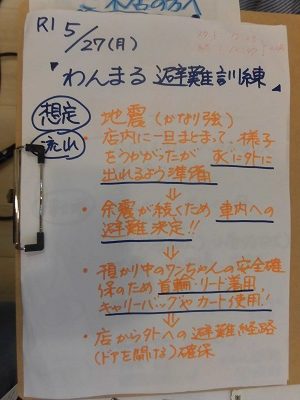 R1 5/27(月)
「わんまる避難訓練」
想定 地震(かなり強)
流れ ・店内に一旦まとまって、様子
をうかがったが すぐに外に
出れるよう準備
⇓
・余震が続くため 車内への
避難決定!!
⇓
・預かり中のワンちゃんの安全確
保のため 首輪・リード着用、
キャリーバッグや カート使用!
⇓
・店から外への避難経路
(ドアを開ける)確保